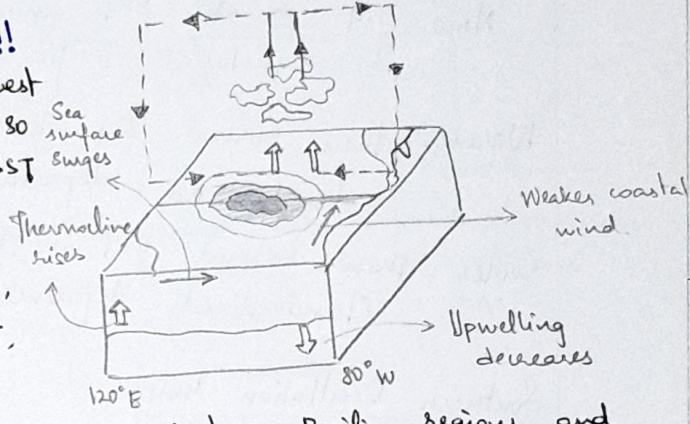 !!
est
Sea
surface
surges
80
ST
Thermocline
rises
Weaker coastal
wind.
Upwelling
decreases
120°E
80°W
regions and